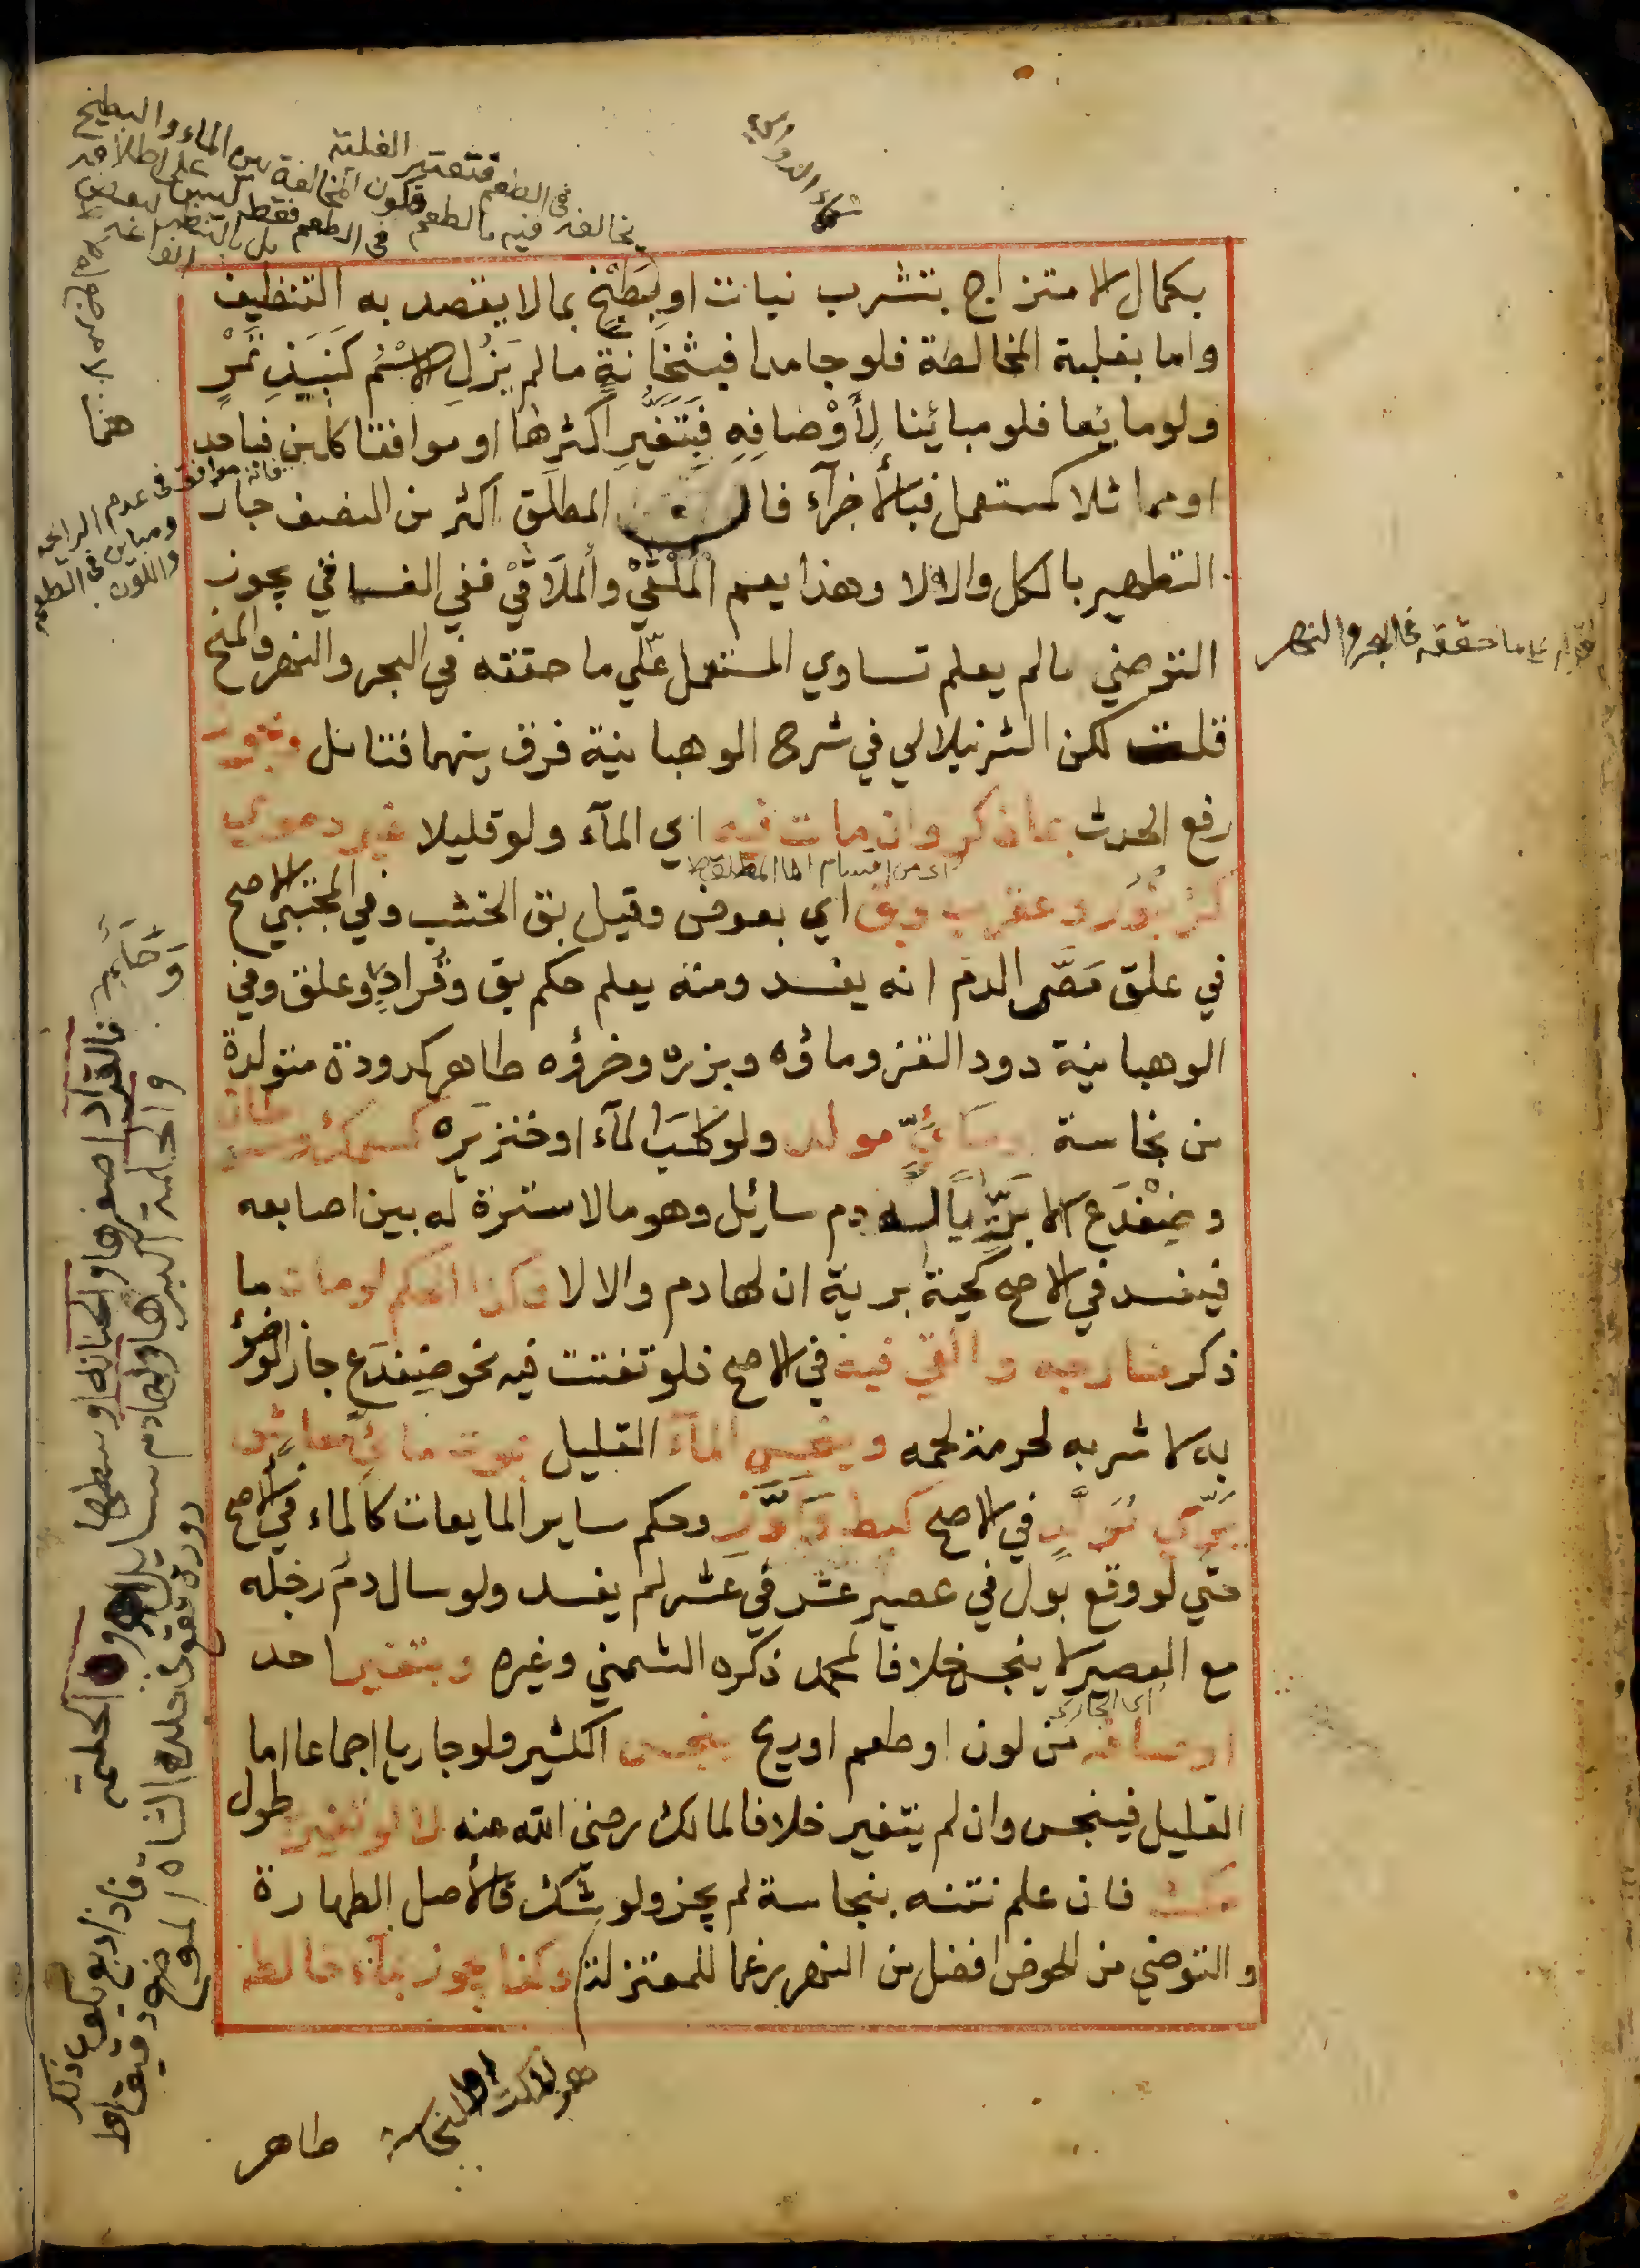 بكمال الامتزاج بتشرب نبات او بِطَبْخٍ بمالا يقصد به التنظيف
واما بغلبة المخالطة فلو جامدا فبثَخَانَةٍ مالم يَزُلِ الاسْمُ كَنَبِيذِ تَمْرٍ
ولو مايعا فلو مبائينا لِأَوْصَافِهِ فَبِتَغَيُّرِ اكثرها او موافقا كلبن فباحد
او مماثلا كمستعمل فبالأجزآء فان المطلق اكثر من النصف جاز
التطهير بالكل والا لا وهذا يعم المُلْقَيْ والمُلَاقَيْ ففي الفساقي يجوز
التوضي مالم يعلم تساوي المستعمل علي ما حققه في البحر والنهر والمنح
قلت لكن الشرنبلالي في شرح الوهبانية فرق بينهما فتامل ويجوز
رفع الحدث بما ذكر وان مات فيه اي المآء ولو قليلا غير دموي
اى من اقسام الما المطلق
كزُنْبُور وعقرب وبق اي بعوض وقيل بق الخشب وفي المجتبي الاصح
في علق مَصَّ الدم انه يفسد ومنه يعلم حكم بق وقُرادٍ وعلق وفي
الوهبانية دود القز وماؤه وبزره وخرؤه طاهر كدودة متولدة
من نجاسة ومائيِّ مولد ولو كلبَ المآء او خنزيره كسمك وسرطان
وضِفْدَع الا بَرِّيًّا له دم سايل وهو مالا سترة له بين اصابعه
فيفسد في الاصح كحية برية ان لها دم والا لا وكذا الحكم لو مات ما
ذكر خارجه والقي فيه في الاصح فلو تفتت فيه نحو ضِفْدَع جاز الوضؤ
به لا شربه لحرمة لحمه وينجس المآء القليل بموت مائي معاش
برّي مولدٍ في الاصح كبط وَاوَزّ وحكم ساير المايعات كالماء في الأصح
حتي لو وقع بول في عصير عَشْر في عَشْر لم يفسد ولو سال دم رجله
مع العصير لا ينجس خلافا لمحمد ذكره الشمني وغيره وبتغير احد
اى الجارى
اوصافه من لون او طعم او ريح ينجس الكثير ولو جاريا اجماعا اما
القليل فينجس وان لم يتغير خلافا لمالك رضى الله عنه لا لو تغير طول
مكث فان علم نتنه بنجاسة لم يجز ولو شك فالأصل الطهارة
والتوضي من الحوض افضل من النهر رغما للمعتزلة وكذا يجوز بمآء خالطه
طاهر
فتعتبر الغلبة
فى الطعم
فانه موافق فى عدم الرايحه
ومباين فى الطعم
واللون
على ما حققه فى البحر والنهر
فالقراد اصغرها والحنانه اوسطها
والحلمة اكبرها ولها دم سايل
والحلمة دودة تقع فى جلد الشاة
فاذا دبغ يكون ذلك
الموضع دقيقا